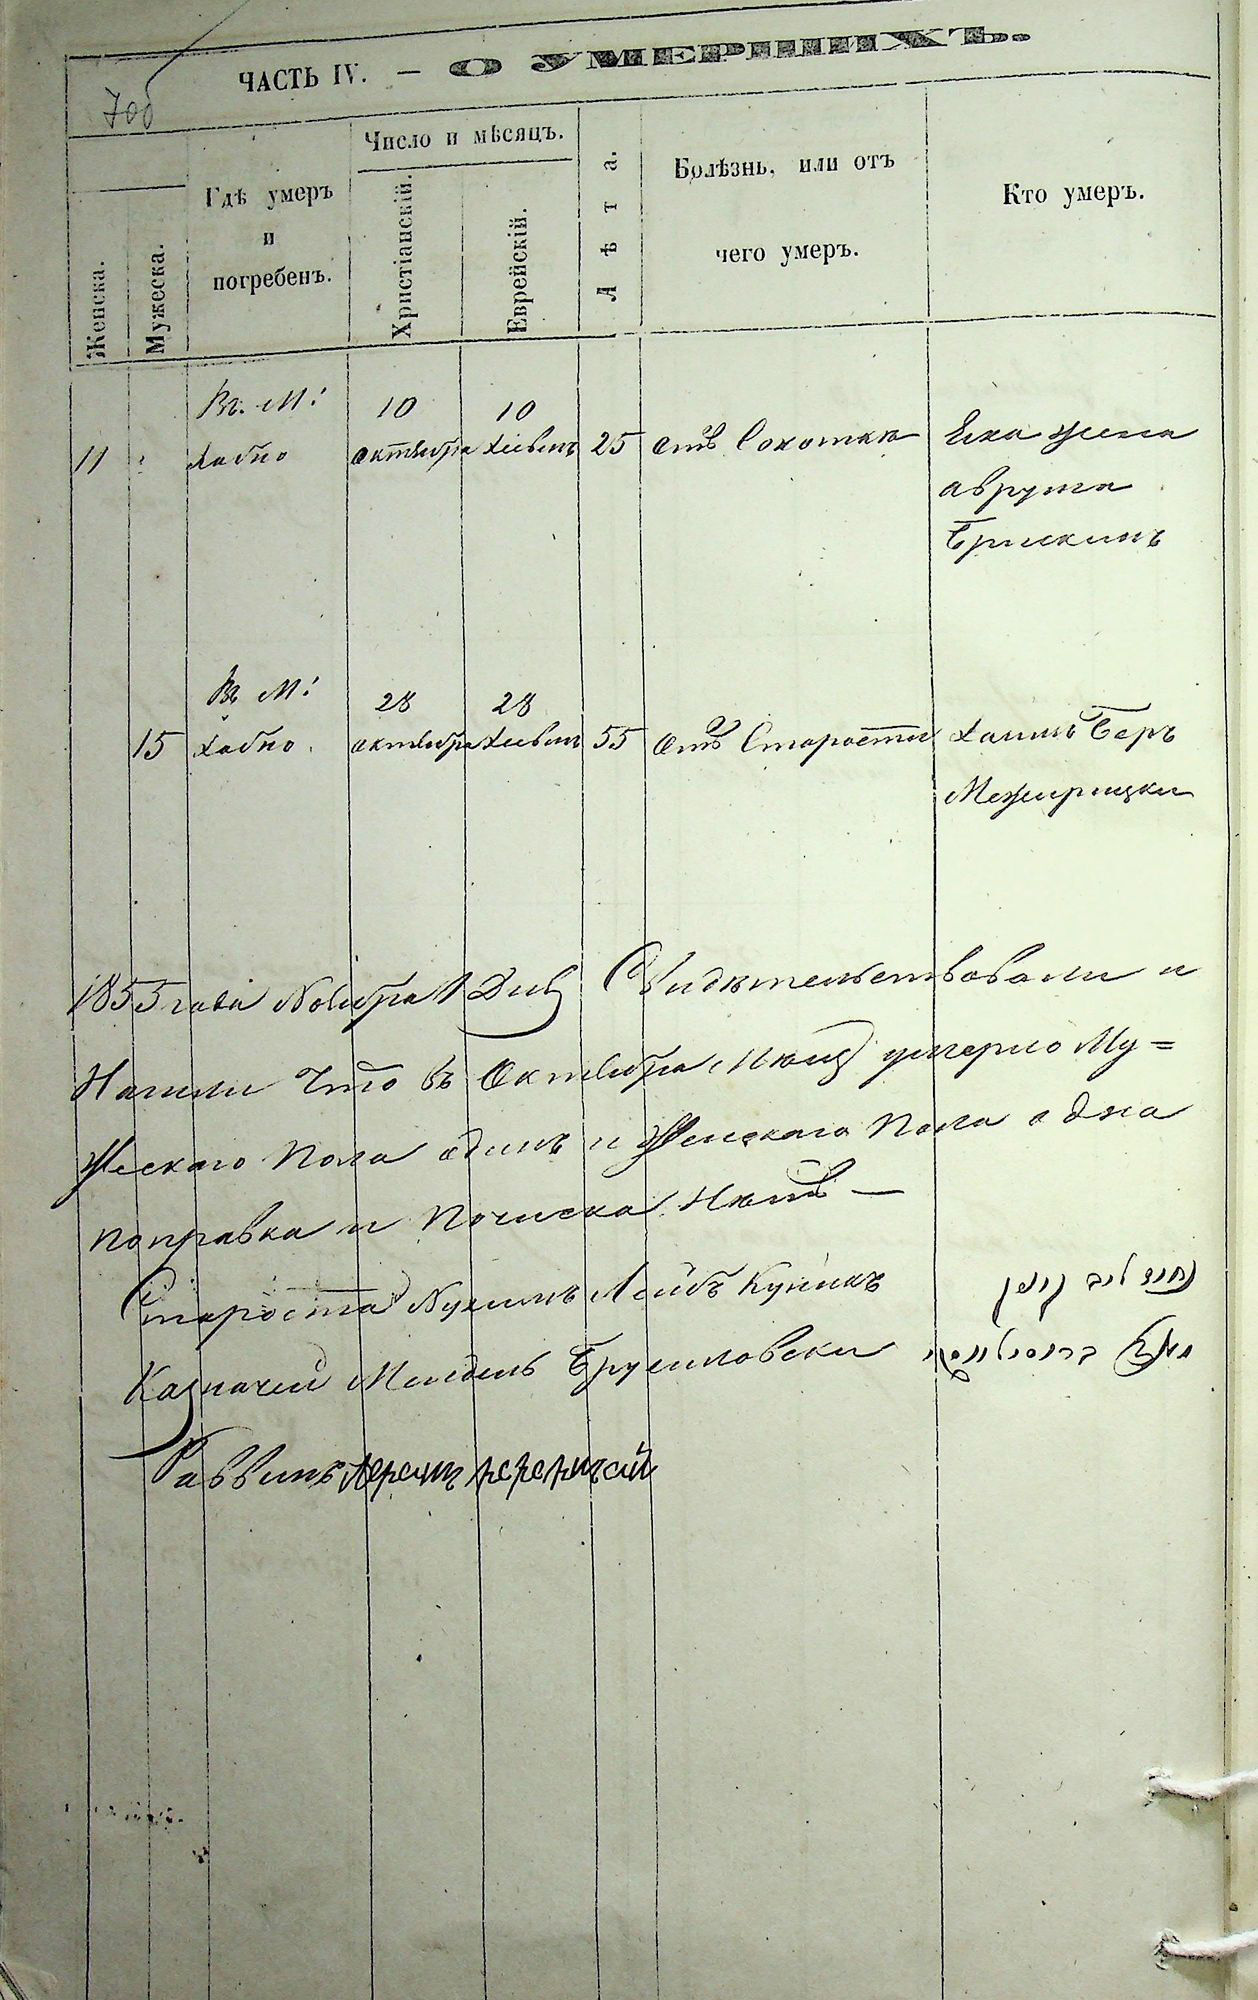 706
ЧАСТЬ IV. — О УМЕРШИХЪ.
Женска.
Мужеска.
Гдѣ умеръ
и
погребенъ.
Число и мѣсяцъ.
Христіанскій.
Еврейскій.
Лѣта.
Болѣзнь, или отъ
чего умеръ.
Кто умеръ.
Въ М: 10 10
11 Хабно октября Хесвинъ 25 отъ Сохотки жена
Аврума
Брискинъ
Въ М: 28 28
15 Хабно октября Хесвинъ 55 отъ Старости Хаимъ Беръ
Межирицки
1855 года Ноября 1 Дня Свидетельствовали и
Нашли что въ Октября Мѣсяц умерло Му=
жескаго Пола одинъ и Женскаго Пола одна
поправка и почиска Нѣтъ —
Староста Нухимъ Лейбъ Куникъ
Казначей Мендель Бруиловски
Раввинъ